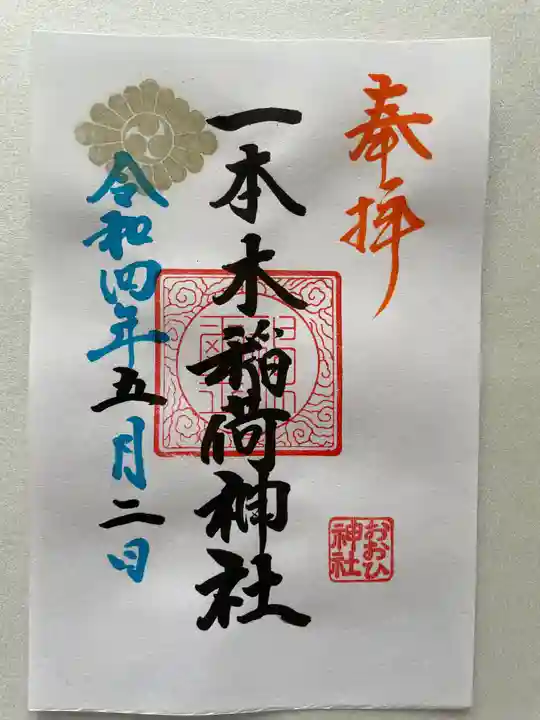 奉拝
一本木稲荷神社
令和四年五月二日
おおひ
神社